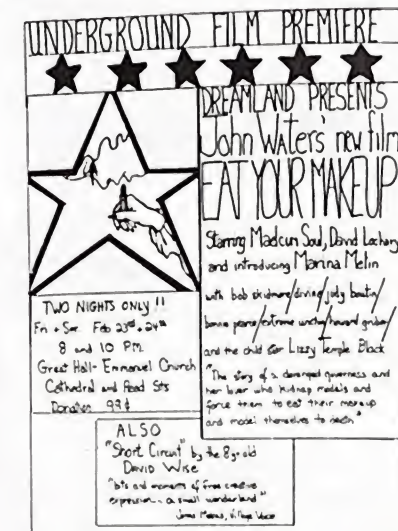 UNDERGROUND FILM PREMIERE
DREAMLAND PRESENTS
John Waters' new film
EAT YOUR MAKEUP
Starring Maelcum Soul, David Lochary
and introducing Marina Melin
with bob skidmore/divine/judy boutin/
bonnie pearce/extreme unction/howard gruber/
and the child star Lizzy Temple Black
"The story of a deranged governess and
her lover who kidnap models and
force them to eat their makeup
and model themselves to death"
TWO NIGHTS ONLY !!
Fri + Sat. Feb 23rd + 24th
8 and 10 PM.
Great Hall - Emmanuel Church
Cathedral and Read Sts
Donation 99¢
ALSO
"Short Circuit" by the 8 yr old
David Wise
"bits and moments of free creative
expression - a small wonderland"
Jonas Mekas, Village Voice